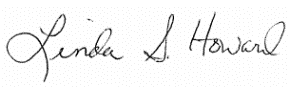 Linda S. Howard